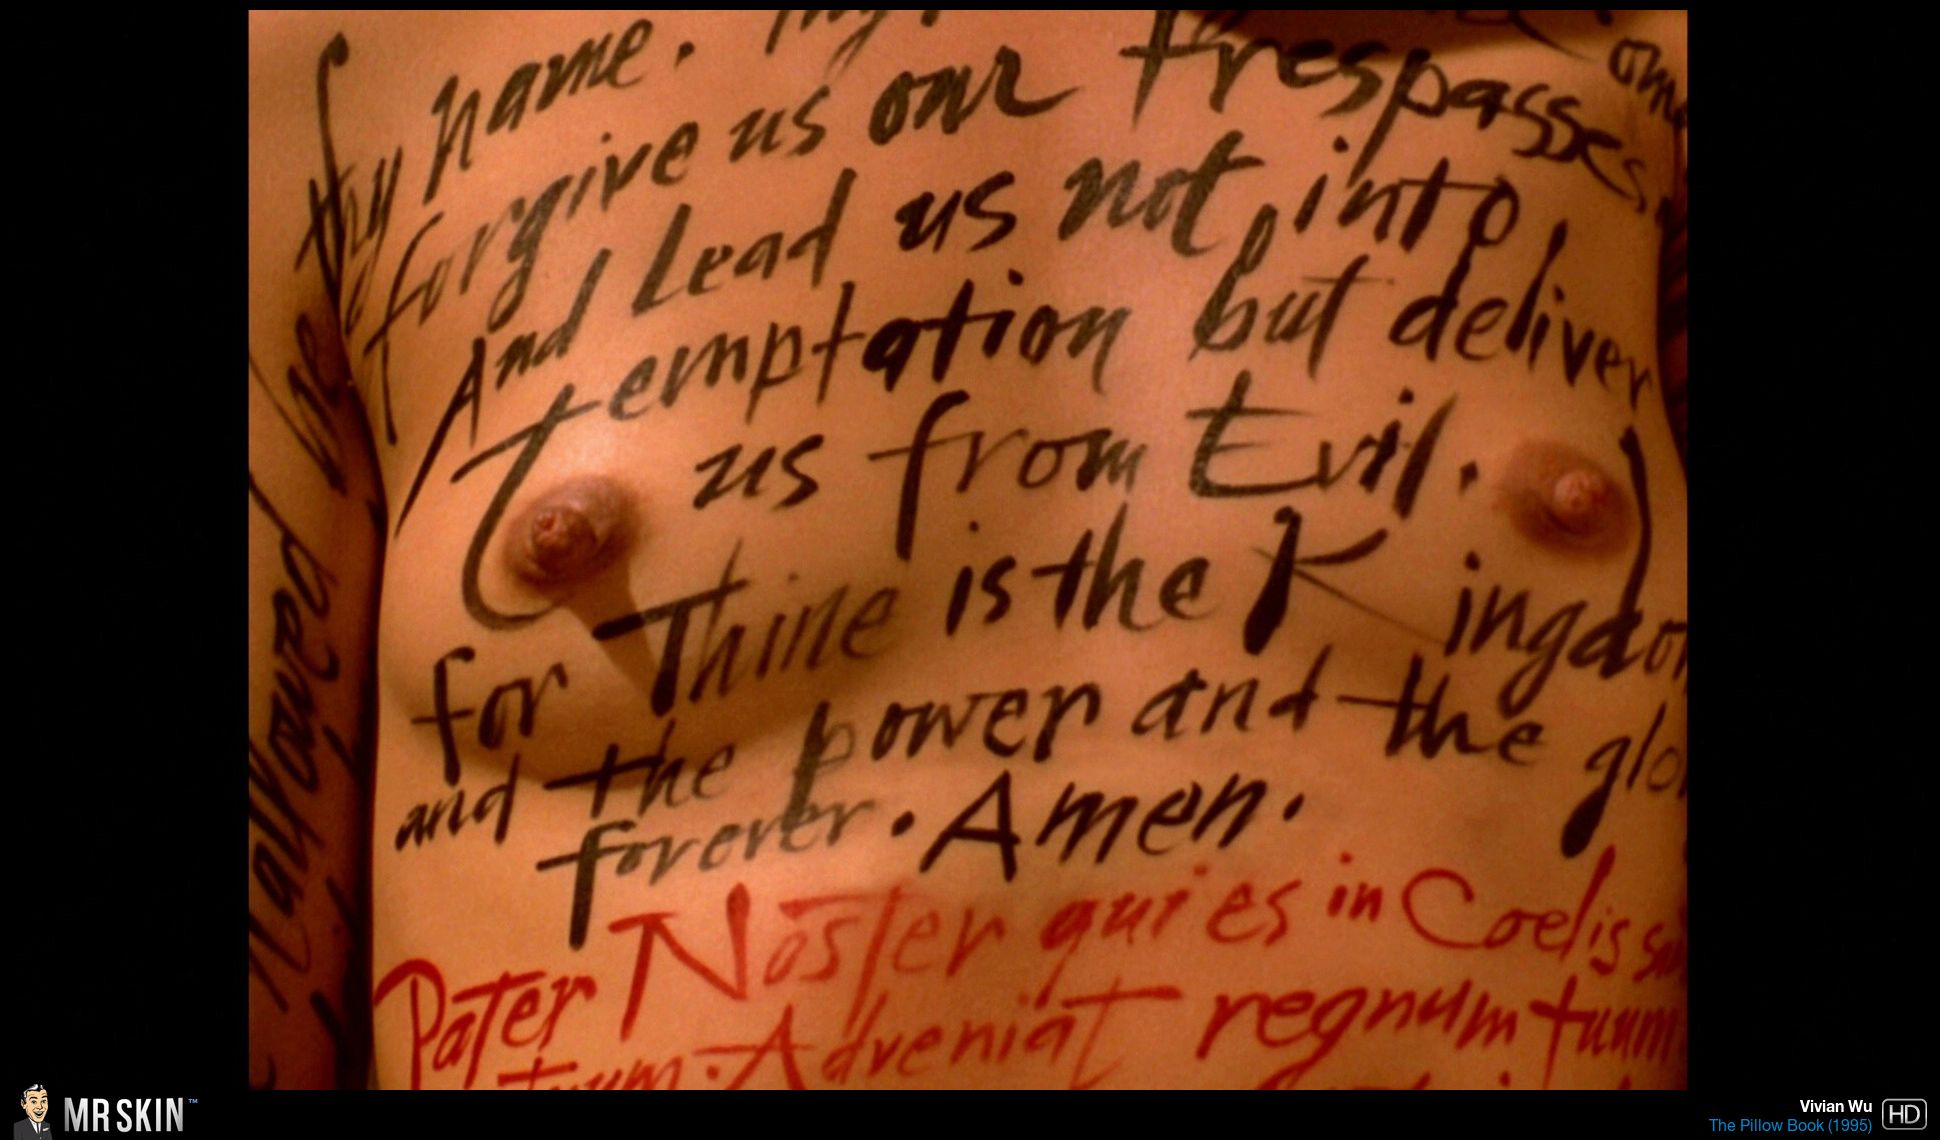 thy name. Thy
forgive us our trespasses
And Lead us not into
Temptation but deliver
us from Evil.
for Thine is the Kingdom
and the power and the glo
forever. Amen.
Pater Noster qui es in Coelis
tuum. Adveniat regnum tuum
Hallowed be
MR SKIN™
Vivian Wu
The Pillow Book (1995)
HD